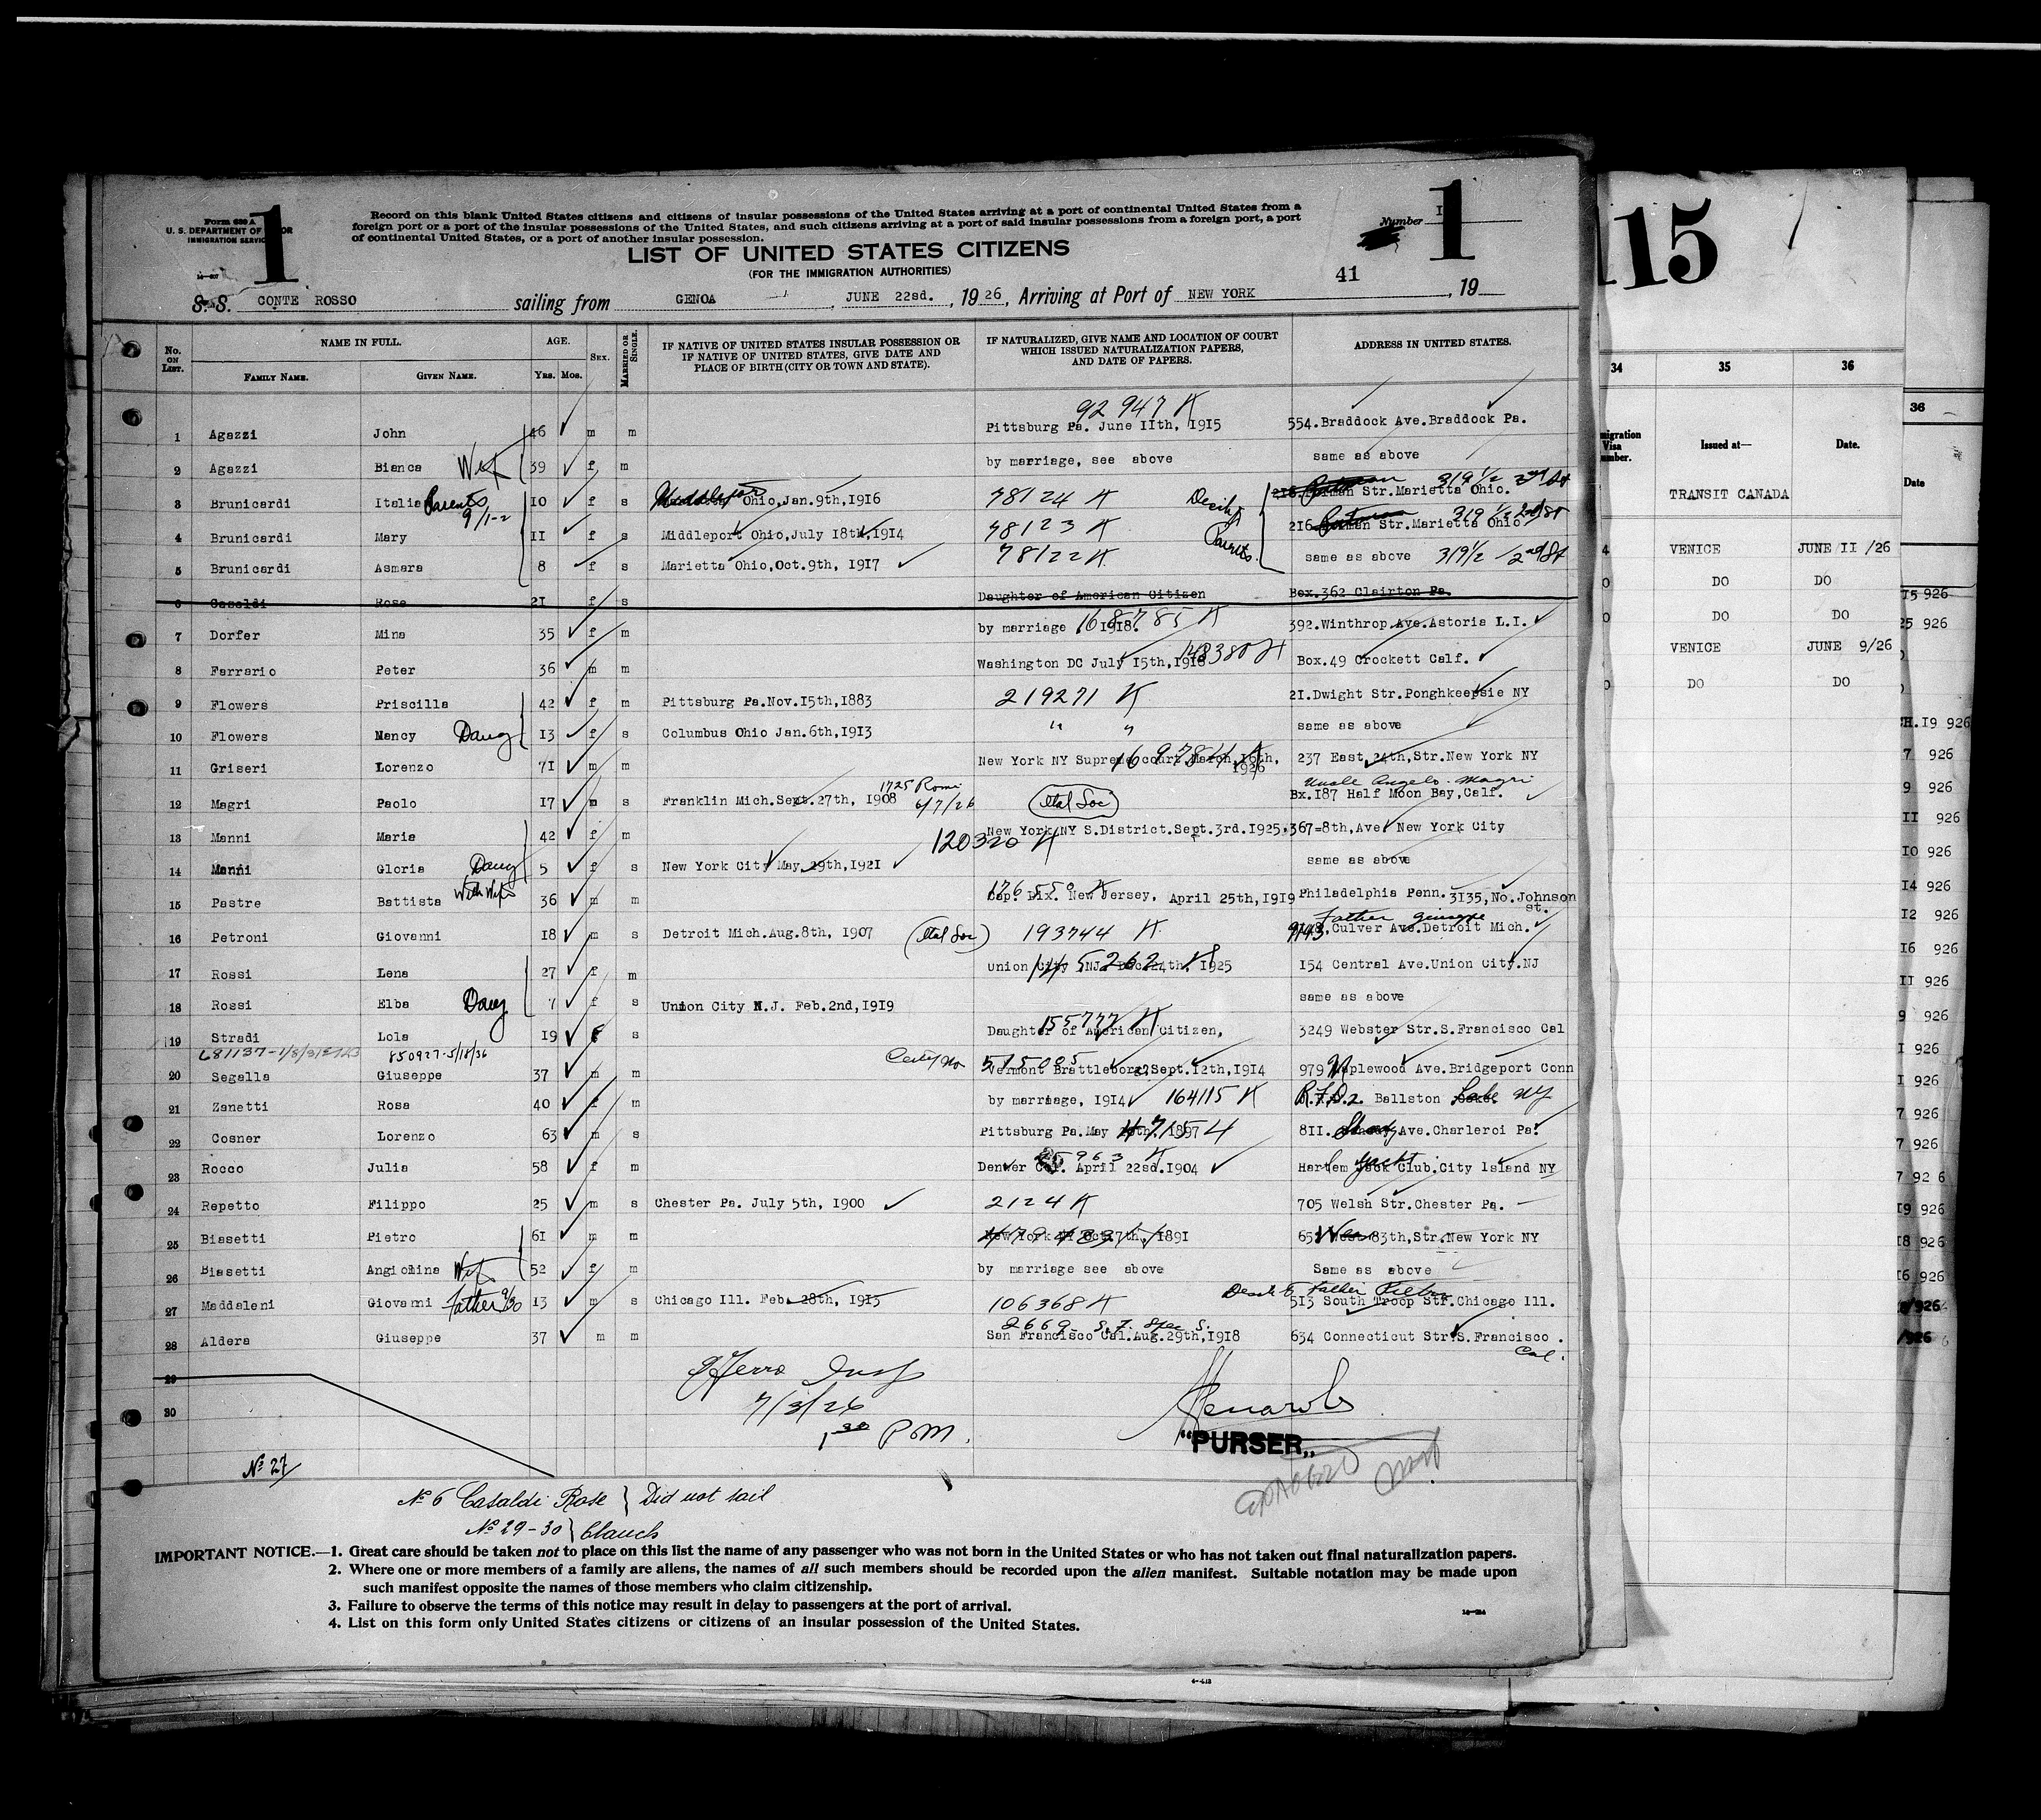 Form 630 A
U. S. DEPARTMENT OF LABOR
IMMIGRATION SERVICE
1
Record on this blank United States citizens and citizens of insular possessions of the United States arriving at a port of continental United States from a
foreign port or a port of the insular possessions of the United States, and such citizens arriving at a port of said insular possessions from a foreign port, a port
of continental United States, or a port of another insular possession.
Number I
1
LIST OF UNITED STATES CITIZENS
(FOR THE IMMIGRATION AUTHORITIES)
41
S.S. CONTE ROSSO sailing from GENOA, JUNE 22sd., 1926, Arriving at Port of NEW YORK, 19
No. ON LIST. NAME IN FULL. FAMILY NAME. GIVEN NAME. AGE. YRS. MOS. SEX. MARRIED OR SINGLE. IF NATIVE OF UNITED STATES INSULAR POSSESSION OR IF NATIVE OF UNITED STATES, GIVE DATE AND PLACE OF BIRTH (CITY OR TOWN AND STATE). IF NATURALIZED, GIVE NAME AND LOCATION OF COURT WHICH ISSUED NATURALIZATION PAPERS, AND DATE OF PAPERS. ADDRESS IN UNITED STATES.
92947 K
1 Agazzi John 46 m m Pittsburg Pa. June IIth, 1915 554.Braddock Ave.Braddock Pa.
2 Agazzi Bianca Wife 39 f m by marriage, see above same as above
3 Brunicardi Italia Parents 9/1-2 10 f s Middleport Ohio,Jan.9th,1916 78124 K Str.Marietta Ohio. 319 1/2 2nd St
4 Brunicardi Mary II f s Middleport Ohio,July 18th,1914 78123 K Parents 216 Str.Marietta Ohio 319 1/2 2nd St
5 Brunicardi Asmara 8 f s Marietta Ohio,Oct.9th, 1917 78122 K same as above 319 1/2 2nd St
6 Casaldi Rose 21 f s Daughter of American Citizen Box.362 Clairton Pa.
7 Dorfer Mina 35 f m by marriage 1918. 168785 K 392.Winthrop.Ave.Astoria L.I.
8 Ferrario Peter 36 m m Washington DC July 15th,1918 Box.49 Crockett Calf.
9 Flowers Priscilla 42 f m Pittsburg Pa.Nov.15th,1883 219271 K 21.Dwight Str.Ponghkeepsie NY
10 Flowers Nancy Daug 13 f s Columbus Ohio Jan.6th,1913 " " same as above
11 Griseri Lorenzo 71 m m New York NY Supreme court March,16th, 1926 237 East,24th,Str.New York NY
12 Magri Paolo 17 m s Franklin Mich.Sept.27th, 1908 1725 Rome 6/7/26 Ital Soc Uncle Angelo Magri Bx.187 Half Moon Bay,Calf.
13 Manni Maria 42 f m 120320 K New York NY S.District.Sept.3rd.1925. 367=8th,Ave New York City
14 Manni Gloria Daug 5 f s New York City May 29th,1921 same as above
15 Pastre Battista With Wife 36 m m Cap. Dix. New Jersey, April 25th,1919 Philadelphia Penn. 3135,No.Johnson st.
16 Petroni Giovanni 18 m s Detroit Mich.Aug.8th, 1907 (Ital Soc) 193744 K Father Giuseppe 9143,Culver Ave.Detroit Mich.
17 Rossi Lena 27 f m Union City NJ Dec.24th, 1925 154 Central Ave.Union City.NJ
18 Rossi Elba Daug 7 f s Union City N.J. Feb.2nd,1919 same as above
19 Stradi Lola 19 f s 155777 K Daughter of American Citizen, 3249 Webster Str.S.Francisco Cal
850927-5/18/36 515005
20 Segalla Giuseppe 37 m m Vermont Brattleboro,Sept.12th,1914 979 Maplewood Ave.Bridgeport Conn
21 Zanetti Rosa 40 f m by marriage, 1914 164115 K R.F.D.2 Ballston Lake NY
22 Cosner Lorenzo 63 m s Pittsburg Pa.May 1897 811. Ave.Charleroi Pa.
23 Rocco Julia 58 f m Denver Col. April 22sd.1904 Harlem Yacht Club.City Island NY
24 Repetto Filippo 25 m s Chester Pa. July 5th, 1900 2124 K 705 Welsh Str.Chester Pa.
25 Biasetti Pietro 61 m m New York 1891 83th,Str.New York NY
26 Biasetti Angiolina Wife 52 f m by marriage see above Same as above
27 Maddaleni Giovanni Father 9/30 13 m s Chicago Ill. Feb. 28th, 1915 106368 K Father Pietro 513 South Troop Str.Chicago Ill.
28 Aldera Giuseppe 37 m m 2669 S.F. Spec S. San Francisco Cal.Aug.29th,1918 634 Connecticut Str.S.Francisco. Cal.
29
30
7/3/26
1 30 P.M.
"PURSER"
No 27
No 6 Casaldi Rose } Did not sail
No 29-30 } blanck
IMPORTANT NOTICE.—1. Great care should be taken not to place on this list the name of any passenger who was not born in the United States or who has not taken out final naturalization papers.
2. Where one or more members of a family are aliens, the names of all such members should be recorded upon the alien manifest. Suitable notation may be made upon
such manifest opposite the names of those members who claim citizenship.
3. Failure to observe the terms of this notice may result in delay to passengers at the port of arrival.
4. List on this form only United States citizens or citizens of an insular possession of the United States.
115
34 35 36
Issued at— Date.
TRANSIT CANADA
VENICE JUNE II /26
DO DO
DO DO
VENICE JUNE 9/26
DO DO
36
Date